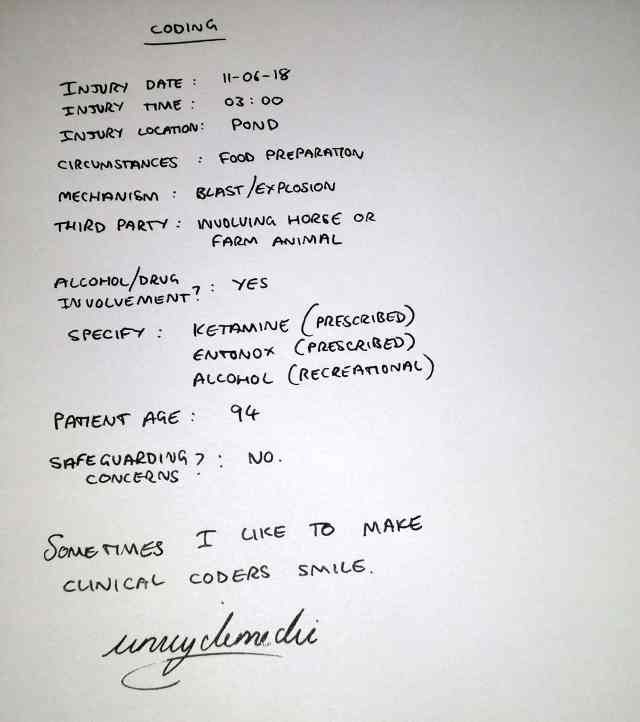 CODING
INJURY DATE : 11-06-18
INJURY TIME : 03:00
INJURY LOCATION: POND
CIRCUMSTANCES : FOOD PREPARATION
MECHANISM : BLAST/EXPLOSION
THIRD PARTY : INVOLVING HORSE OR
FARM ANIMAL
ALCOHOL/DRUG
INVOLVEMENT? : YES
SPECIFY : KETAMINE (PRESCRIBED)
ENTONOX (PRESCRIBED)
ALCOHOL (RECREATIONAL)
PATIENT AGE : 94
SAFEGUARDING? : NO.
CONCERNS
SOMETIMES I LIKE TO MAKE
CLINICAL CODERS SMILE.